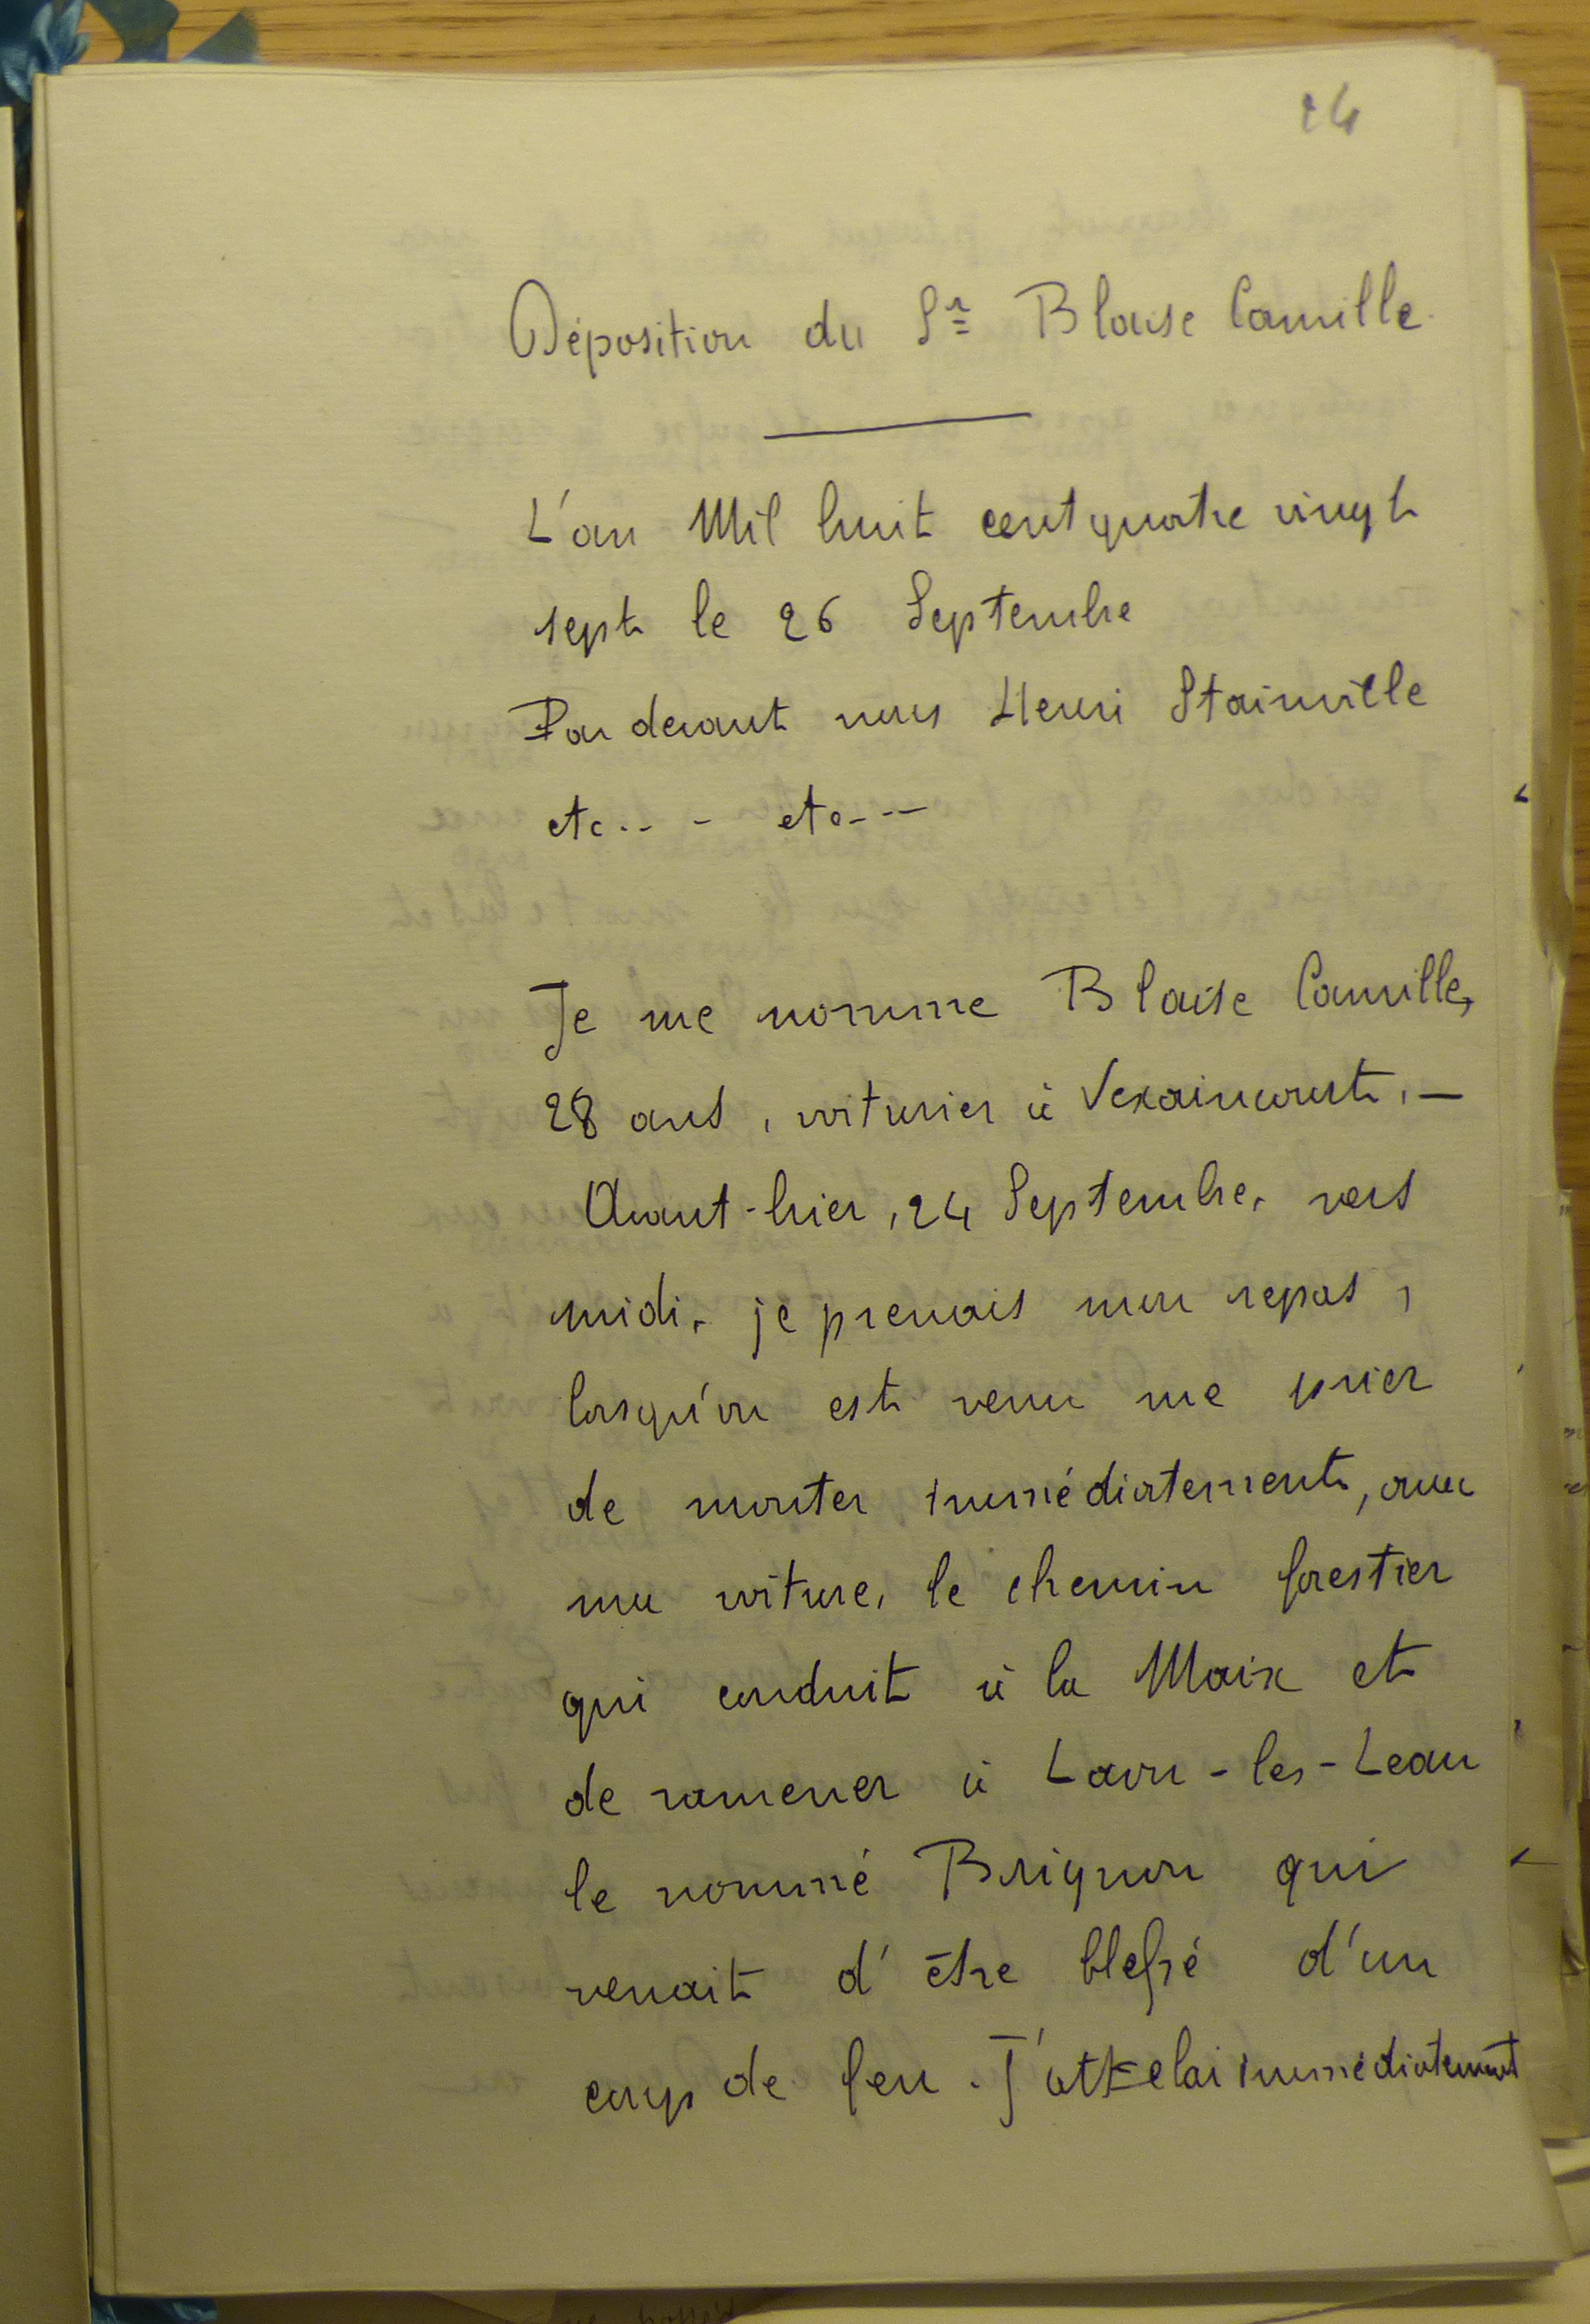 24
Déposition du Sr Blaise Camille.
L'an Mil huit cent quatre vingt
sept le 26 Septembre
Par devant nous Henri Stainville
etc.. - etc---
Je me nomme Blaise Camille,
28 ans, voiturier à Vexaincourt. —
Avant-hier, 24 Septembre, vers
midi, je prenais mon repas,
lorsqu'on est venu me prier
de monter immédiatement, avec
ma voiture, le chemin forestier
qui conduit à la Maix et
de ramener à Laon-les-Leau
le nommé Brignon qui
venait d'être blessé d'un
coup de feu. J'attelai immédiatement